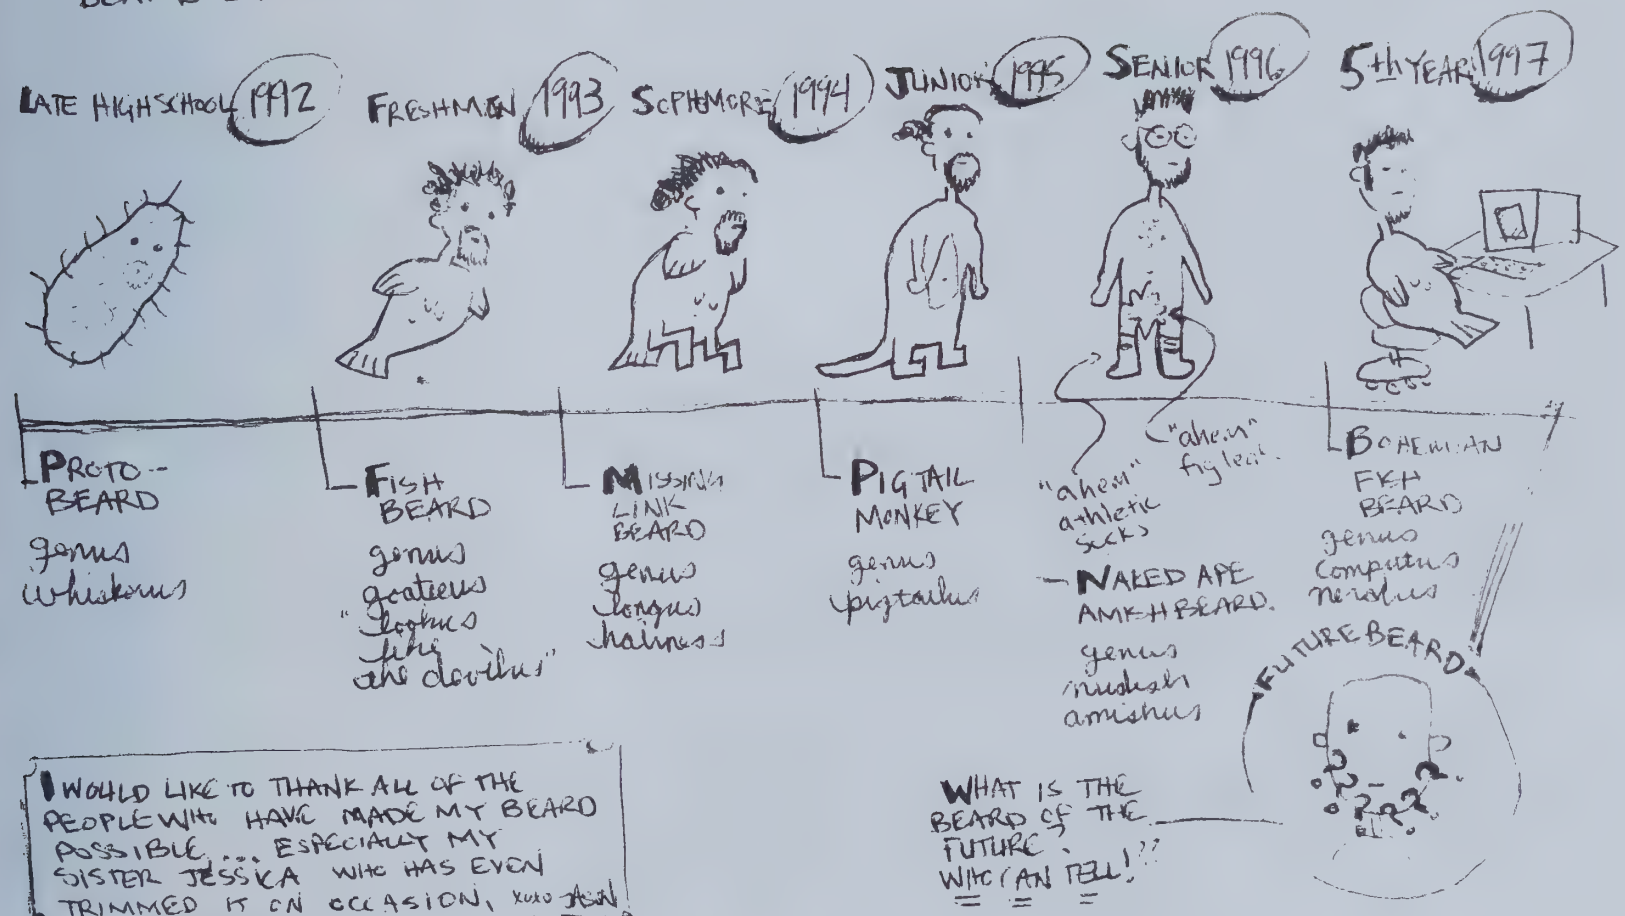 LATE HIGHSCHOOL 1992
FRESHMEN 1993
SOPHEMORE 1994
JUNIOR 1995
SENIOR 1996
5th YEAR 1997
PROTO-
BEARD
genus
whiskorus
FISH
BEARD
genus
goateeus
"lookus
like
the devilus"
MISSING
LINK
BEARD
genus
longus
hairness
PIGTAIL
MONKEY
genus
pigtailus
"ahem"
athletic
socks
"ahem"
fig leaf.
NAKED APE
AMISH BEARD.
genus
nudish
amishus
BOHEMIAN
FISH
BEARD
genus
computus
nerdus
FUTURE BEARD
I WOULD LIKE TO THANK ALL OF THE
PEOPLE WHO HAVE MADE MY BEARD
POSSIBLE... ESPECIALLY MY
SISTER JESSICA WHO HAS EVEN
TRIMMED IT ON OCCASION, xoxo JASON
WHAT IS THE
BEARD OF THE
FUTURE?
WHO CAN TELL!??